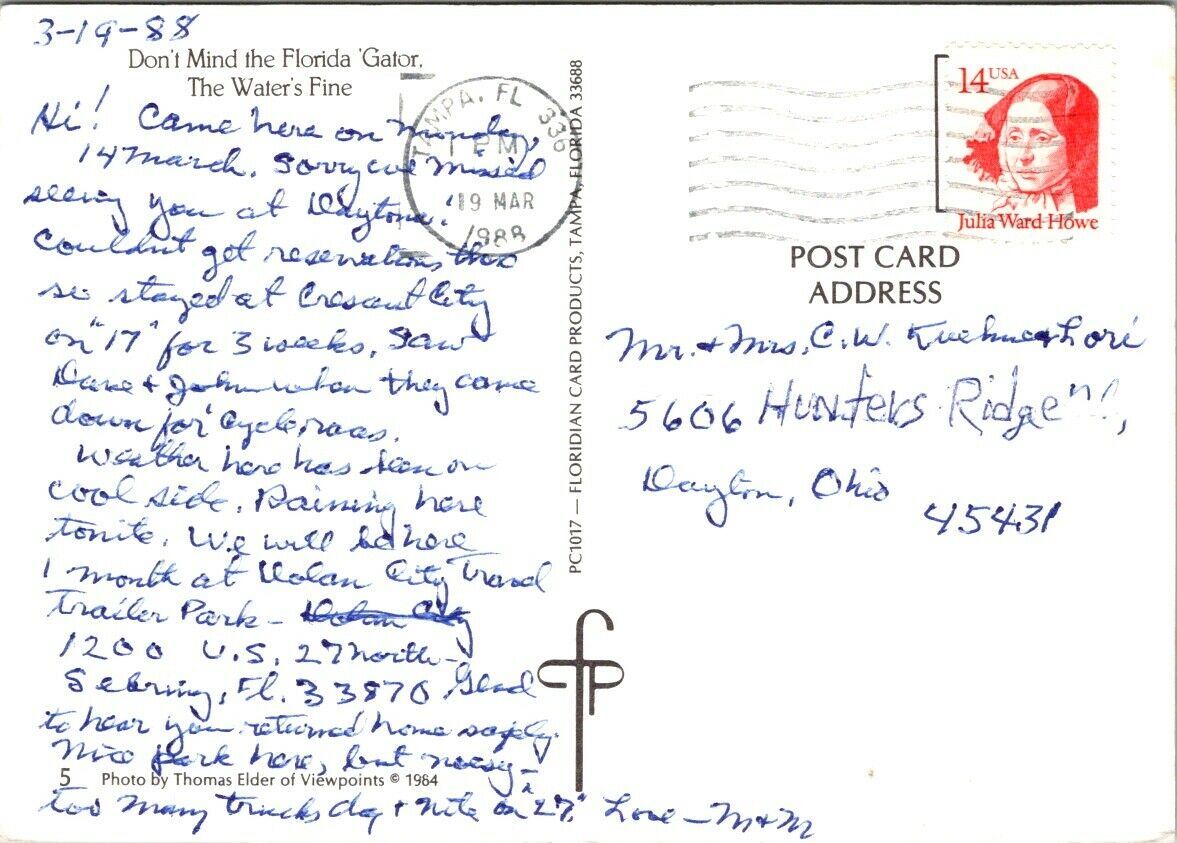 3-19-88
Don't Mind the Florida 'Gator,
The Water's Fine
Hi! Came here on Monday,
14 March. Sorry we missed
seeing you at Daytona.
Couldn't get reservations there
so stayed at Cresant City
on "17" for 3 weeks. Saw
Dave + John when they came
down for cycle races.
Weather here has been on
cool side. Raining here
tonite. We will be here
1 month at Dolan City Travel
Trailer Park - Dolan City
1200 U.S. 27 North -
Sebring, Fl. 33870 Glad
to hear you returned home safely.
Nice park here, but noisy -
5 Photo by Thomas Elder of Viewpoints © 1984
too many trucks day + nite on "27." Love - M + M
PC1017 — FLORIDIAN CARD PRODUCTS, TAMPA, FLORIDA 33688
TAMPA, FL 336
1 PM
19 MAR
1988
14 USA
Julia Ward Howe
POST CARD
ADDRESS
Mr. + Mrs. C.W. Kuehne + Lori
5606 Hunters Ridge
Dayton, Ohio
45431